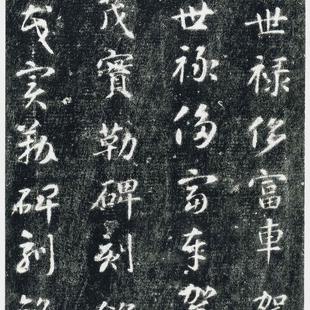 世禄侈富車駕
世禄侈富車駕
茂實勒碑刻銘
茂實勒碑刻銘